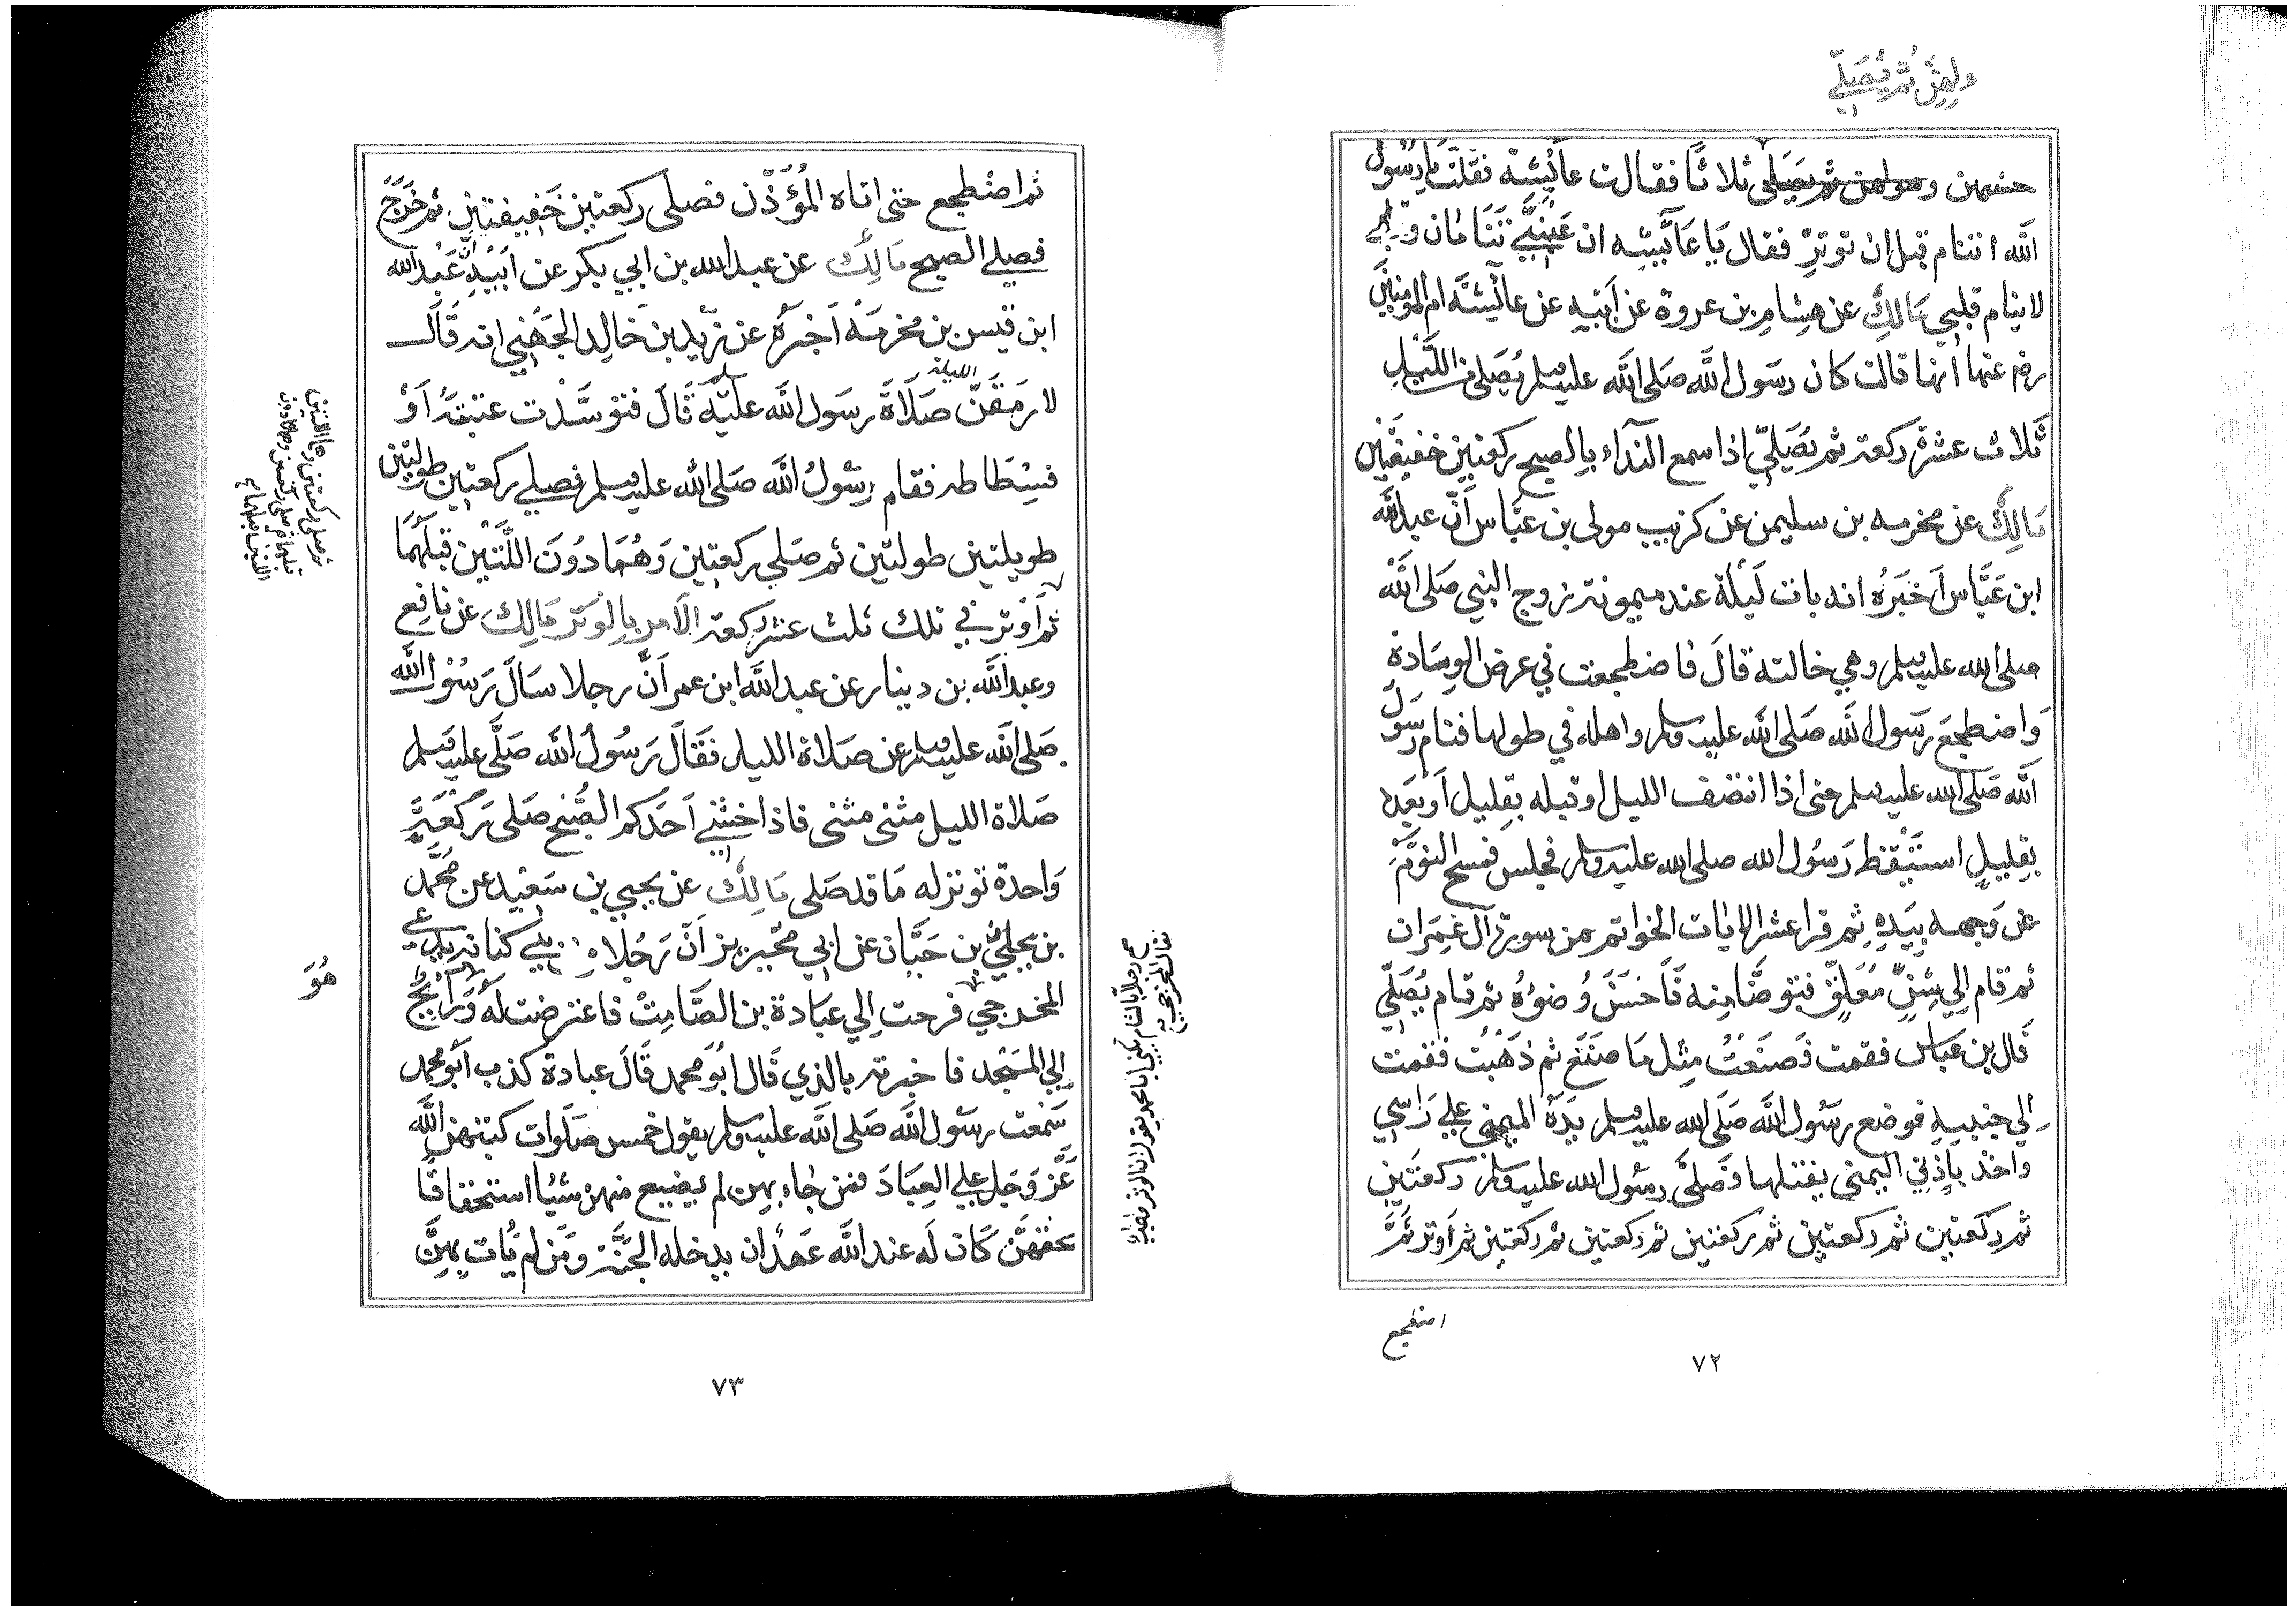 ولهن ثم يصلي
حسنهن وطولهن ثم يصلي ثلاثا فقالت عائيشه فقلت يا رسول
الله اتنام قبل ان توتر فقال يا عائيشه ان عيني تنامان و
لا ينام قلبي مالك عن هشام بن عروة عن ابيه عن عائيشه ام المومنين
رضي عنها انها قالت كان رسول الله صلى الله عليه وسلم يصلي من الليل
ثلاث عشرة ركعة ثم يصلي اذا سمع النداء بالصبح ركعتين خفيفتين
مالك عن مخرمه بن سليمن عن كريب مولى بن عباس ان عبد الله
ابن عباس اخبره انه بات ليلة عند ميمونة زوج النبي صلى الله
صلى الله عليه وسلم وهي خالته قال فاضطجعت في عرض الوسادة
واضطجع رسول الله صلى الله عليه وسلم واهله في طولها فنام رسول
الله صلى الله عليه وسلم حتى اذا انتصف الليل او قبله بقليل او بعده
بقليل استيقظ رسول الله صلى الله عليه وسلم فجلس فمسح النوم
عن وجهه بيده ثم قرا عشر الايات الخواتم من سورة آل عمران
ثم قام الي شن معلق فتوضا منه فاحسن وضوه ثم قام يصلي
قال بن عباس فقمت فصنعت مثل ما صنع ثم ذهبت فقمت
الي جنبه فوضع رسول الله صلى الله عليه وسلم يده اليمنى علي راسي
واخذ باذني اليمنى يفتلها فصلى رسول الله عليه وسلم ركعتين
ثم ركعتين ثم ركعتين ثم ركعتين ثم ركعتين ثم ركعتين ثم اوتر ثم
اضطجع
٧٢
ثم اضطجع حتى اتاه المؤذن فصلى ركعتين خفيفتين ثم خرج
فصلي الصبح مالك عن عبد الله بن ابي بكر عن ابيه ان عبد الله
ابن قيس بن مخرمه اخبره عن زيد بن خالد الجهني انه قال
لارمقن صلاة رسول الله عليه قال فتوسدت عتبته او
الليله
فسطاطه فقام رسول الله صلى الله عليه وسلم فصلي ركعتين طولتين
طويلتين طولتين ثم صلي ركعتين وهما دون اللتين قبلهما
ثم اوتر في تلك ثلث عشر ركعة الامر بالوتر مالك عن نافع
وعبد الله بن دينار عن عبد الله ابن عمر ان رجلا سال رسول الله
صلى الله عليه وسلم عن صلاة الليل فقال رسول الله صلى عليه وسلم
صلاة الليل مثنى مثنى فاذا خشي احدكم الصبح صلى ركعة
واحدة توتر له ما قد صلى مالك عن يحيي بن سعيد عن محمد
بن يحيي بن حبان عن ابي محيريز ان رجلا من بني كنانه يدعي
المخدجي فرحت الي عبادة بن الصامت فاعترضت له و رايح
الي المسجد فاخبرته بالذي قال ابو محمد قال عبادة كذب ابو محمد
سمعت رسول الله صلى الله عليه وسلم يقول خمس صلوات كتبهن الله
عز وجل علي العباد فمن جاء بهن لم يضيع منهن شيئا استخفافا
بحقهن كان له عند الله عهد ان يدخله الجنة ومن لم يات بهن
ثم صلى ركعتين وهما دون اللتين
قبلهما ثم صلى ركعتين وهما دون
اللتين قبلهما
هو
سمع رجلا بالشام يكني ابا محمد يقول ان الوتر
فقال المخدجي
٧٣